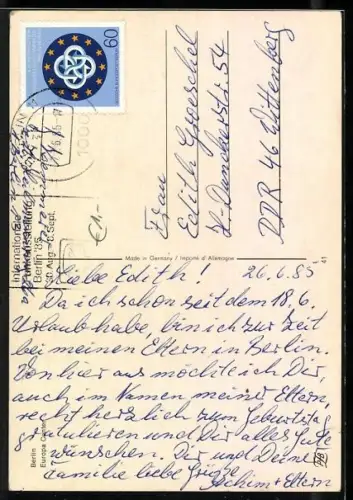 60
1000
Internationale
Funkausstellung
Berlin '85
30. Aug.-8. Sept.
€ 1.-
Frau
Edith Goeschel
H. Dunckerstr. 54
DDR 46 Wittenberg
Made in Germany / Importé d'Allemagne
41
Liebe Edith! 26.6.85
Da ich schon seit dem 18.6.
Urlaub habe, bin ich zur Zeit
bei meinen Eltern in Berlin.
Von hier aus möchte ich Dir
auch im Namen meiner Eltern
recht herzlich zum Geburtstag
gratulieren und Dir alles Gute
wünschen. Dir und Deiner
Familie liebe Grüße
Achim + Eltern
Berlin
Europa-Center